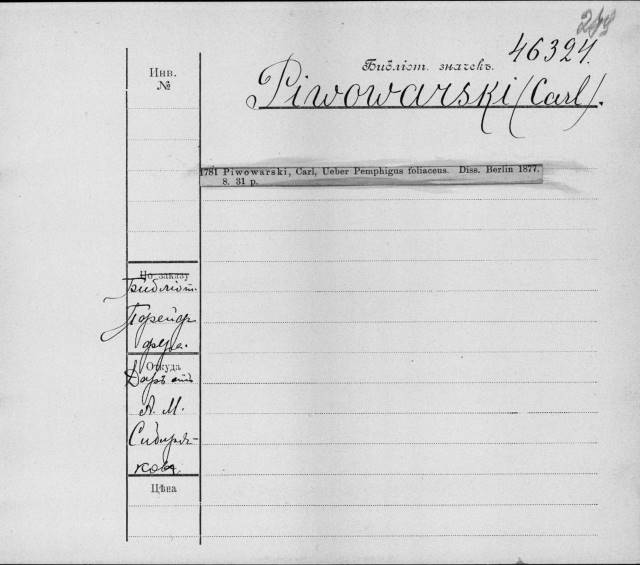 46324.
Инв.
№
Библіот. значекъ.
Piwowarski (Carl).
1781 Piwowarski, Carl, Ueber Pemphigus foliaceus. Diss. Berlin 1877.
8. 31 p.
По заказу
Библіот.
Порейд-
фура.
Откуда
Даръ отъ
А. М.
Сибиря-
кова.
Цѣна